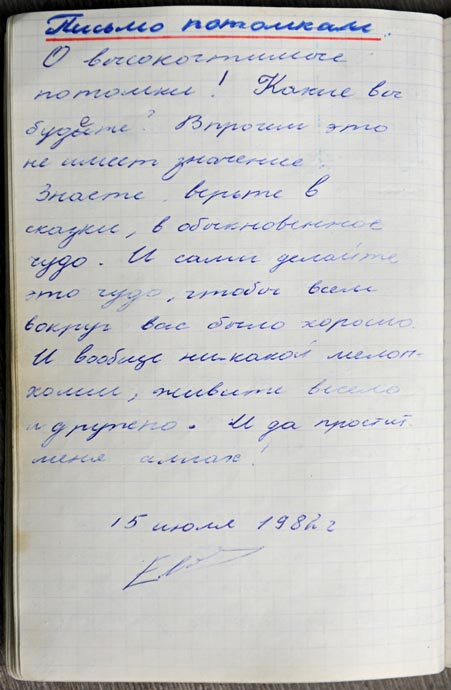 Письмо потомкам.
О высокочтимые
потомки! Какие вы
будете? Впрочем это
не имеет значение.
Знаете, верьте в
сказки, в обыкновенное
чудо. И сами делайте
это чудо, чтобы всем
вокруг вас было хорошо.
И вообще ни-какой мелан-
холии, живите весело
и дружено. И да простит
меня аллах!
15 июля 1982 г